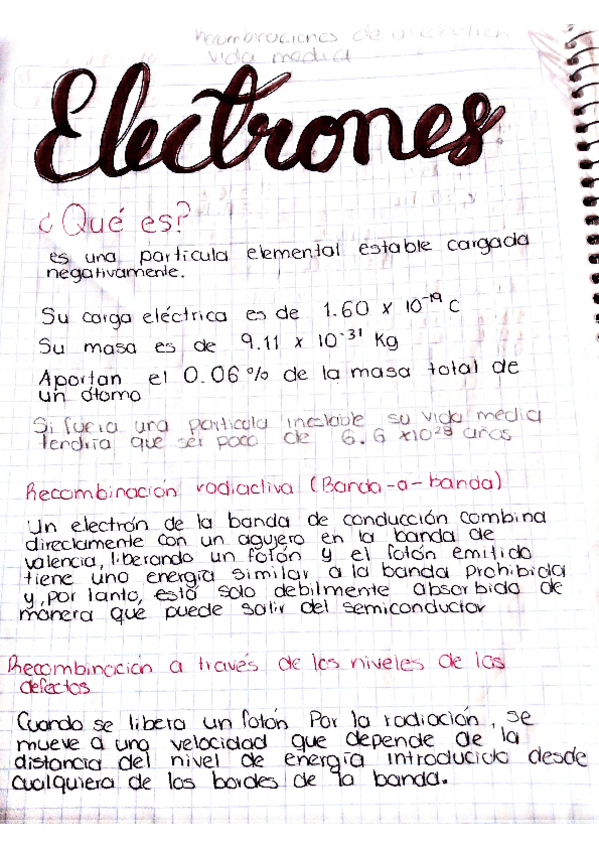 recombinaciones de
vida media
Electrones
¿Qué es?
es una particula elemental estable cargada
negativamente.
Su carga eléctrica es de 1.60 x 10⁻¹⁹ C
Su masa es de 9.11 x 10⁻³¹ Kg
Aportan el 0.06% de la masa total de
un átomo
Si fuera una particula inestable su vida media
tendria que ser poco de 6.6 x10²⁸ años
Recombinación radiactiva (Banda-a-banda)
Un electrón de la banda de conducción combina
directamente con un agujero en la banda de
valencia, liberando un fotón y el fotón emitido
tiene una energía similar a la banda prohibida
y, por tanto, está solo debilmente absorbida de
manera que puede salir del semiconductor
Recombinación a través de los niveles de los
defectos
Cuando se libera un fotón Por la radiación, se
mueve a una velocidad que depende de la
distancia del nivel de energía introducido desde
cualquiera de los bordes de la banda.